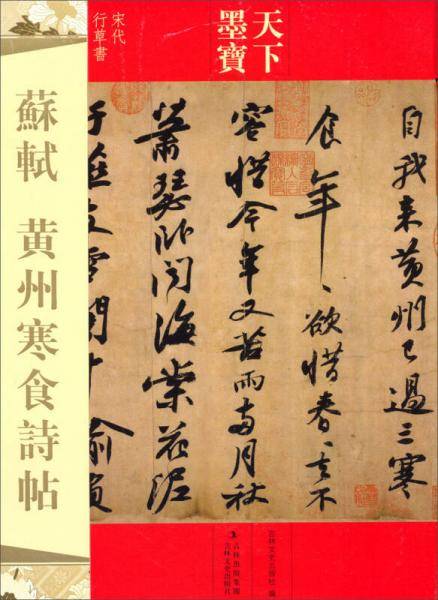 天下
墨寶
宋代
行草書
蘇軾 黄州寒食詩帖
自我來黄州已過三寒
食年〻欲惜春〻去不
容惜今年又苦雨兩月秋
蕭瑟卧聞海棠花泥
支雪闇中偷負
吉林文史出版社 編
吉林出版集團
吉林文史出版社